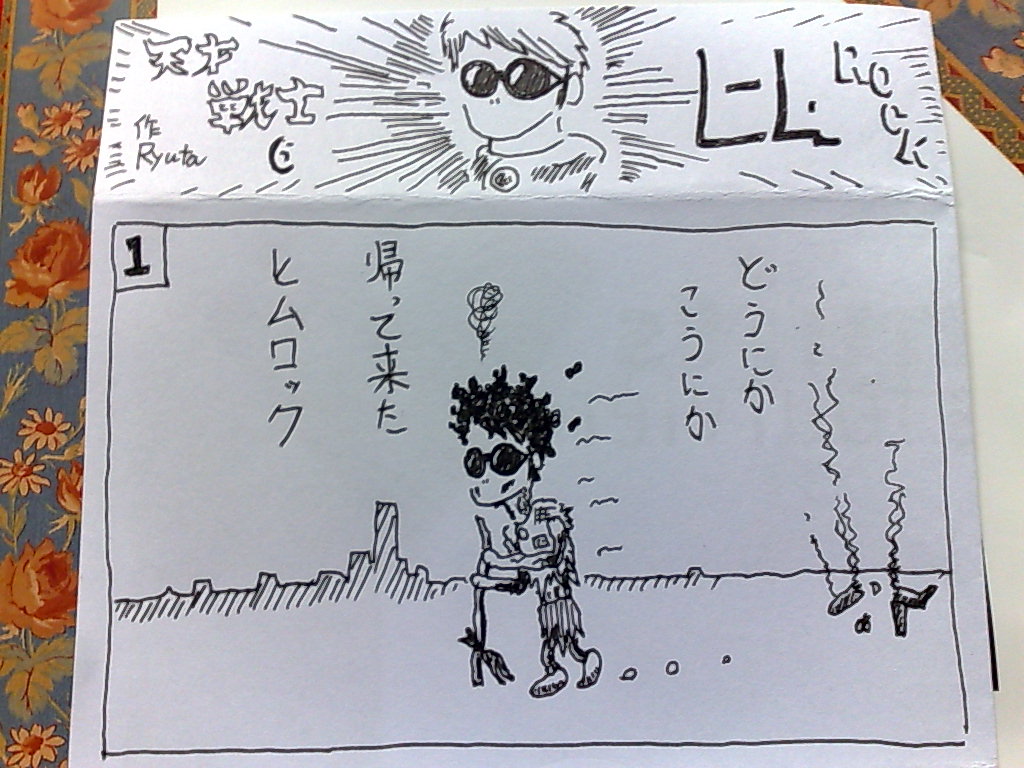 天才
戦士
作
Ryuta
ヒム
ROCK
1
どうにか
こうにか
帰って来た
ヒムロック